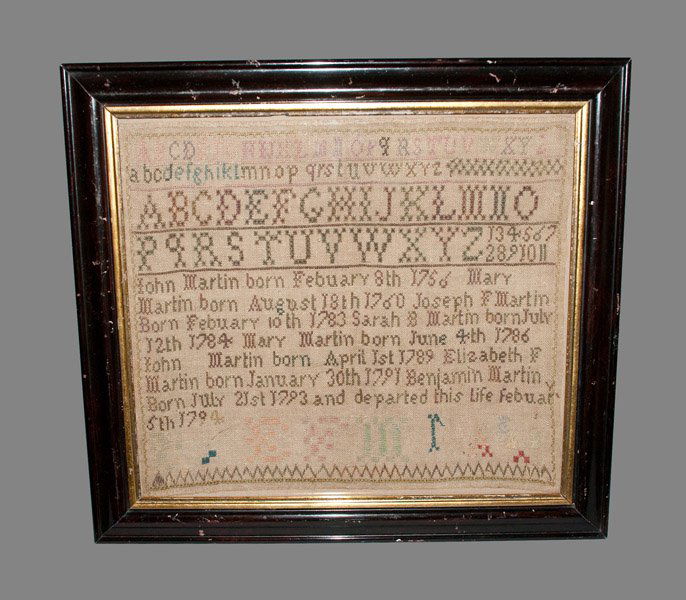 CD L M N O P q R S T U V X Y Z
abcdefghiklmnop qrstuvwxyz
ABCDEFGHIJKLMNO
PqRSTUVWXYZ 134567
28910 11
John Martin born Febuary 8th 1766 Mary
Martin born August 18th 1760 Joseph F Martin
Born Febuary 10th 1783 Sarah B Martin born July
12th 1784 Mary Martin born June 4th 1786
John Martin born April 1st 1789 Elizabeth F
Martin born January 30th 1791 Benjamin Martin
Born July 21st 1793 and departed this life febuary
5th 1794